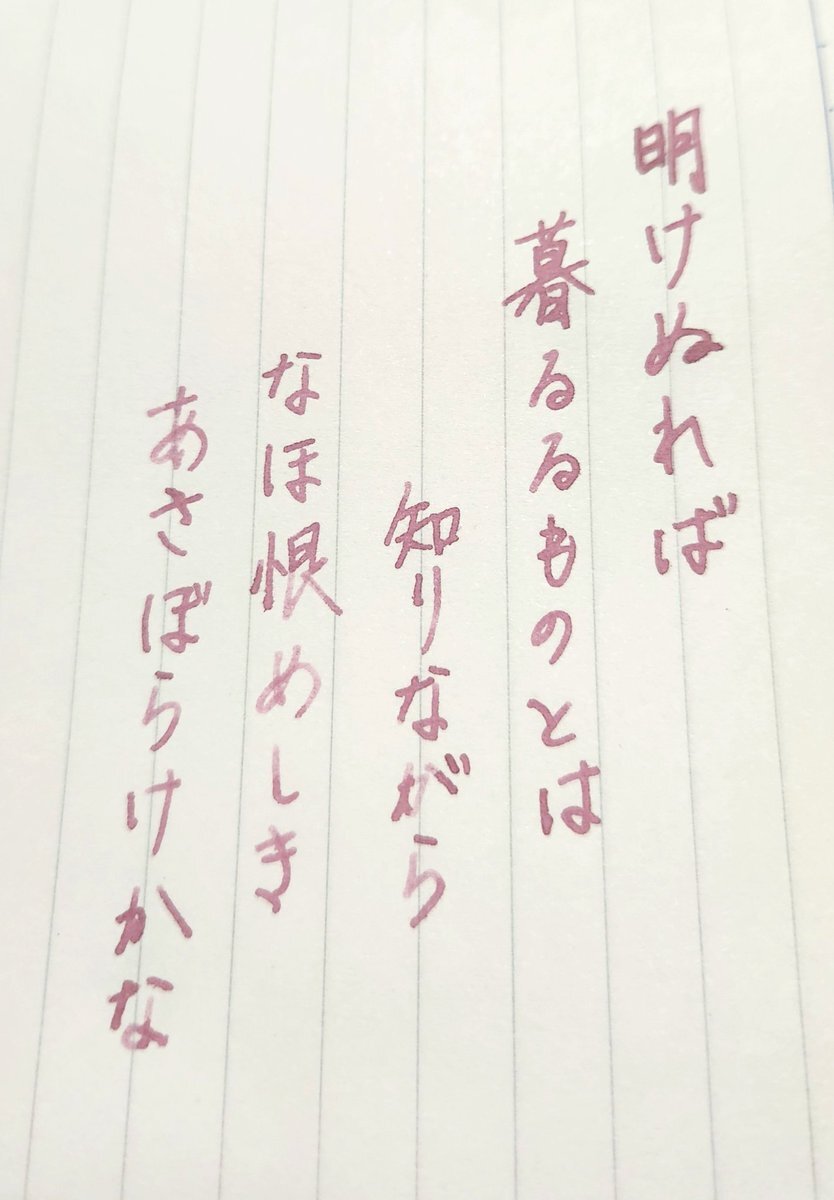 明けぬれば
暮るるものとは
知りながら
なほ恨めしき
あさぼらけかな